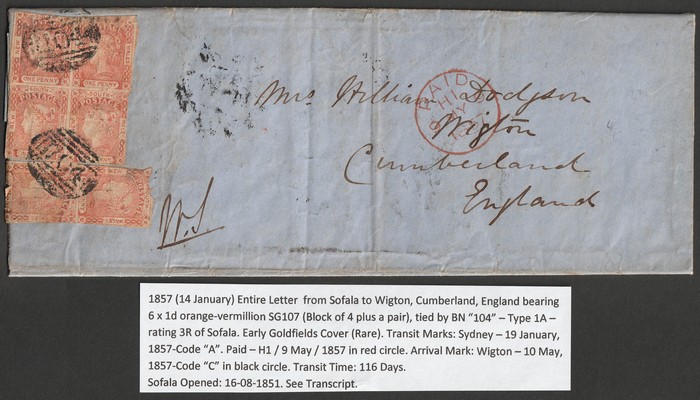 NEW
WALES
ONE PENNY
POSTAGE
POSTAGE
PAID
H1
9 MY
Mrs William Dodgson
Wigton
Cumberland
England
104
1857 (14 January) Entire Letter from Sofala to Wigton, Cumberland, England bearing
6 x 1d orange-vermillion SG107 (Block of 4 plus a pair), tied by BN “104” – Type 1A –
rating 3R of Sofala. Early Goldfields Cover (Rare). Transit Marks: Sydney – 19 January,
1857-Code “A”. Paid – H1 / 9 May / 1857 in red circle. Arrival Mark: Wigton – 10 May,
1857-Code “C” in black circle. Transit Time: 116 Days.
Sofala Opened: 16-08-1851. See Transcript.